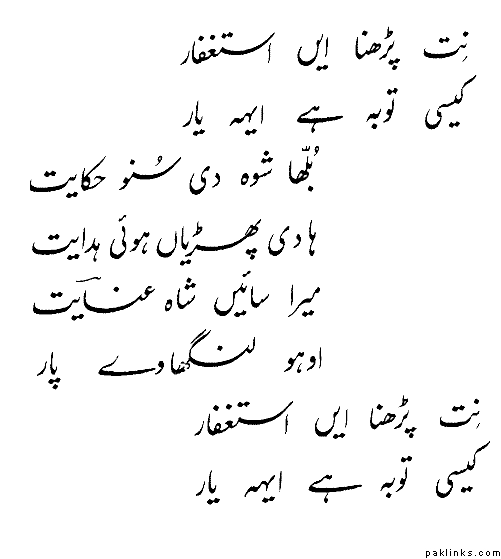 نِت پڑھنا ایں استغفار
کیسی توبہ ہے ایہہ یار
بُلّھا شوہ دی سُنو حکایت
ہادی پھڑیاں ہوئی ہدایت
میرا سائیں شاہ عنایت
اوہو لنگھاوے پار
نِت پڑھنا ایں استغفار
کیسی توبہ ہے ایہہ یار
paklinks.com